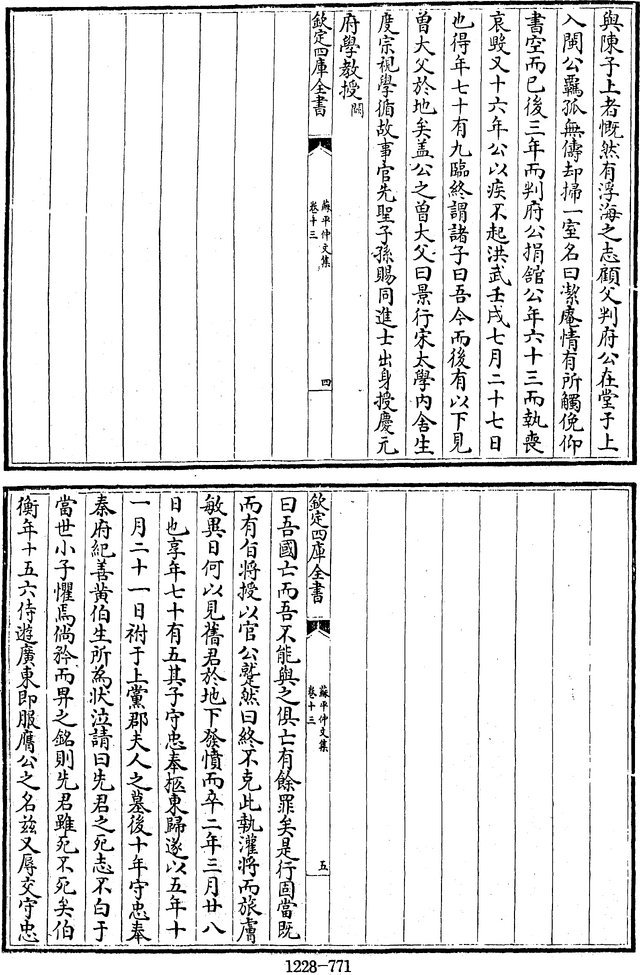 與陳子上者慨然有浮海之志顧父判府公在堂子上
入閩公羈孤無儔却掃一室名曰潔庵情有所觸俛仰
書空而已後三年而判府公捐舘公年六十三而執喪
哀毀又十六年公以疾不起洪武壬戌七月二十七日
也得年七十有九臨終謂諸子曰吾今而後有以下見
曽大父於地矣盖公之曽大父曰景行宋太學內舍生
度宗視學循故事官先聖子孫賜同進士出身授慶元
府學教授闕
欽定四庫全書
蘇平仲文集
卷十三
四
欽定四庫全書
蘇平仲文集
卷十三
五
曰吾國亡而吾不能與之俱亡有餘罪矣是行固當既
而有㫖將授以官公蹵然曰終不克此執灌將而旅膚
敏異日何以見舊君於地下發憤而卒二年三月廿八
日也享年七十有五其子守忠奉柩東歸遂以五年十
一月二十一日祔于上黨郡夫人之墓後十年守忠奉
秦府紀善黃伯生所為狀泣請曰先君之死志不白于
當世小子懼焉倘矜而畀之銘則先君雖死不死矣伯
衡年十五六侍遊廣東即服膺公之名兹又辱交守忠
1228-771